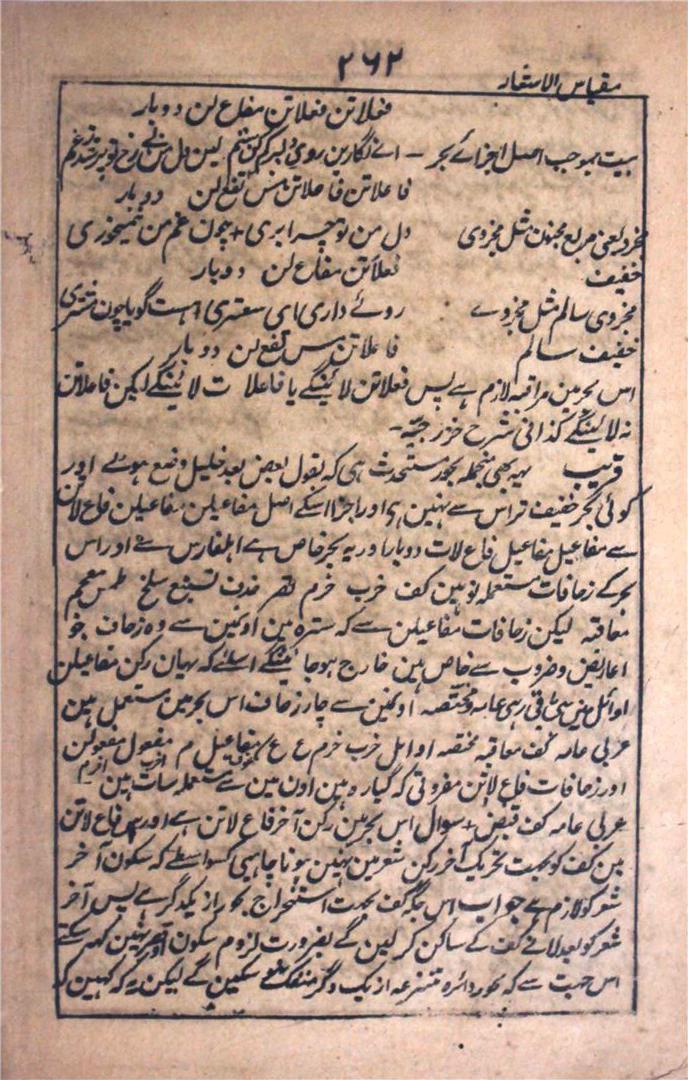 ۲۶۲
مقیاس الاشعار
فعلاتن فعلاتن مفاع لن دوبار
بیت بموجب اصل اجزائے بحر – اے نگارین روی دلبر
فاعلاتن فاعلاتن مس تفع لن دوبار
یعنی مربع مجنون مثل مجزوی دل من تو چرا بری + چون غم من نمیخوری
خفیف فعلاتن مفاع لن دوبار
مجزوی سالم مثل مجزوے روئے داری ای سعتری است گویا چون مشتری
خفیف سالم فاعلاتن مس تفع لن دوبار
اس بحر مین مراقبہ لازم ہے پس فعلاتن لائینگے یا فاعلات لائینگے لیکن فاعلاتن
نہ لائینگے کذا فی شرح خزرجیہ –
قریب یہہ بھی منجملہ بحور مستحدث ہی کہ بقول بعض بعد خلیل وضع ہوئے اور
کوئی بحر خفیف تر اس سے نہین ہی اور اجزا اسکے اصل مفاعیلن مفاعیلن فاع لاتن
سے مفاعیل مفاعیل فاع لات دوبار اور یہ بحر خاص ہے اہلفارس سے اور اس
بحر کے زحافات مستعملہ نو ہین کف خرب خرم قصر حذف تسبیغ سلخ طمس
معاقبہ لیکن زحافات مفاعیلن سے کہ سترہ ہین اونمین سے وہ زحاف جو
اعاریض و ضروب سے خاص ہین خارج ہوجائینگے اسلئے کہ یہان رکن مفاعیلن
اوائل مین ہی باقی رہی عامہ و مختصہ اونمین سے چار زحاف اس بحر مین مستعمل ہین
عربی عامہ کف معاقبہ مختصہ اوایل خرب خرم ع ع مفاعیل م مفعول مفعولن
مکفوف اخرب اخرم
اور زحافات فاع لاتن مفروقی کہ گیارہ ہین اون مین سے مستعملہ سات ہین
عربی عامہ کف قبض + سوال اس بحر مین رکن آخر فاع لاتن ہے اور فاع لاتن
مین کف کو بجہت تحریک آخر رکن شعر مین نہین ہونا چاہیی کسواسطے کہ سکون آخر
شعر کو لازم ہے جواب اس جگہ کف بجہت استخراج بحور از یکدگر ہے پس آخر
شعر کو بعد لانے کف کے ساکن کرلین گے بضرورت لزوم سکون اور نہین کہہ سکتے
اس جہت سے کہ بحور دائرہ متنزعہ از یک دگر منفک ہو سکین گے لیکن یہ کہ کہین کہ